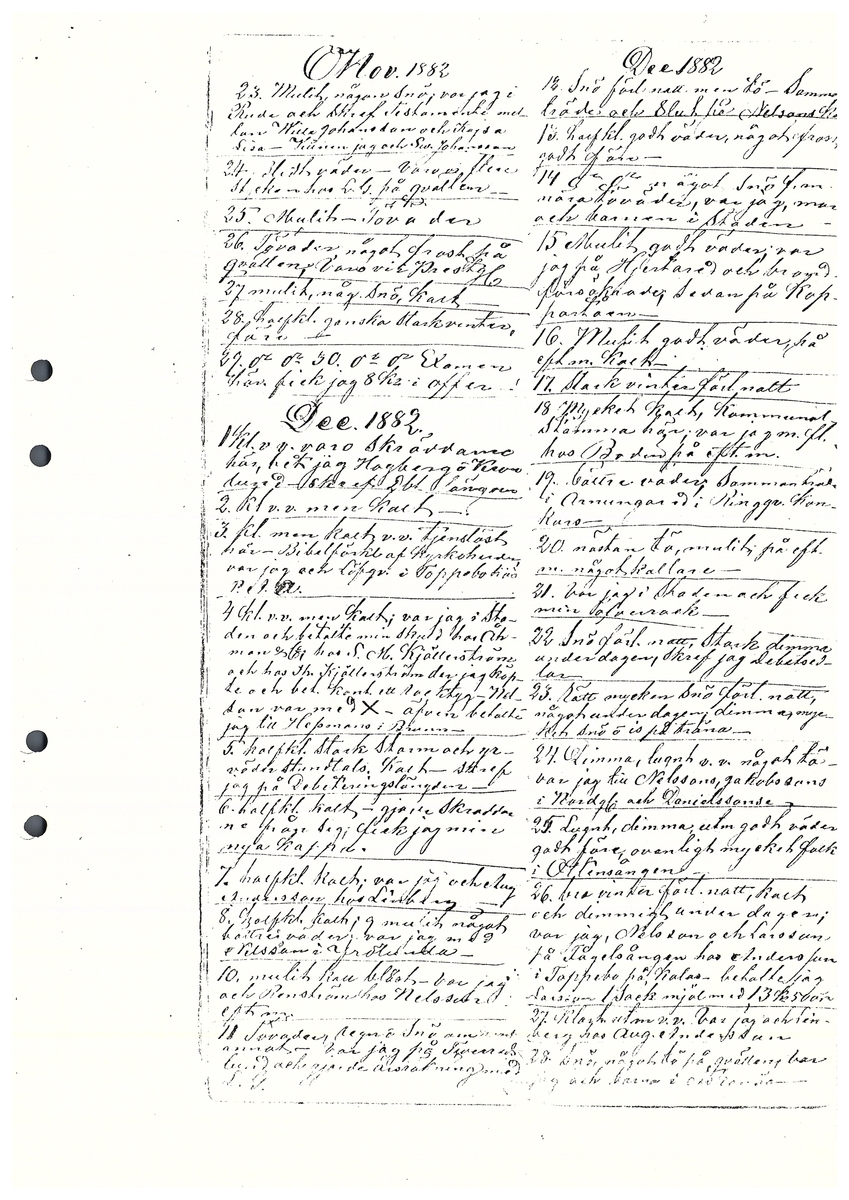 Nov. 1882
23. Mulit, någon Snö; var jag i
Rude och skref Testamente mel-
lan Johansson och Kajsa
Lisa – jag och Johansson
24. väder – Voro flere
hos L.G. på qvällen –
25. Mulit – Töväder
26. Töväder något frost på
qvällen, Voro vi i Prestg.
27 mulit, någ. Snö, kallt
28. halfkl. ganska stark vinter,
före –
29. do do 30. do do Examen
här, fick jag 8 kr. i offer!
Dec. 1882.
1 Kl. v. v. voro Skräddarne
här, jag Hagberg
skref Dbt. längden
2. Kl v. v. men kallt –
3. kl. men kallt v.v. tjenlöst
här – Bibelförkl. af Kyrkoherden
var jag och Löfqv. i Toppebo
4 kl. v.v. men kallt; var jag i Sta-
den och betalte min skuld hos
man hos C. M. Kjällerström
och hos Hr Kjällerström der jag köp-
te och bet. kont. ett rocktyg – Nel-
son var med X – äfven betalte
jag till Hessmans i
5. halfkl. Stark Storm och yr-
väder stundtals. kallt – skref
jag på Debiteringslängden –
6. halfkl. kallt – gjorde Skräddar-
ne ifrån sig; fick jag min
nya kappa.
7. halfkl. kallt; var jag och Aug
Andersson, hos Linberg –
8. halfkl. kallt; 9 mulit något
bättre väder; var jag med
Nelsson i
10. mulit kall blåst – var jag
och Renström hos Nelssons
eft m.
11 Töväder, regn o Snö om vart
annat – var jag på
lund och gjorde Afräkning med
Dec 1882
12. Snö förl. natt men tö – Samman-
träde och Slut på Nelsons
13. halfkl. godt väder, något frost,
godt före –
14 do do något Snö f.m.
nära töväder, var jag, mor
och barnen i Staden –
15 Mulit godt väder; var
jag på Hjertared och brand-
försäkrade, sedan på Kop-
parhoen –
16. Mulit godt väder, på
eft. m. kallt –
17. Stark vinter förl. natt
18 Mycket kallt, Kommunal
Stämma här; var jag m. fl.
hos Boden på eft. m.
19. bättre väder, Sammanträde
i Arnungared i Ringqv. Kon-
kurs –
20. nästan tö, mulit; på eft.
m. något kallare –
21. Var jag i Staden och fick
min öfverrock –
22 Snö förl. natt, Stark dimma
under dagen, skref jag Debetsed-
lar –
23. Rätt mycken Snö förl. natt,
något under dagen; dimma, myc-
ket Snö o is på träna –
24. Dimma, lugnt v. v. något tö –
var jag till Nelssons, Jakobssons
i Nordg. och Danielssons –
25. Lugnt, dimma, utm godt väder
godt före, ovanligt mycket folk
i Ottesången –
26. bra vinter förl. natt, kallt
och dimmigt under dagen;
var jag, Nelsson och Larsson
på Fågelsången hos Andersson
i Toppebo på Kalas – betalte jag
Larsson 1 Säck mjöl med 13 K 50 öre
27. Klart utm v.v. Var jag och Lin-
berg hos Aug. Andersson
28. Snö, något tö på qvällen; var
jag och barna i